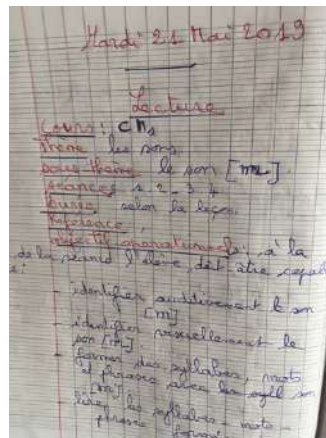 Mardi 21 Mai 2019
Lecture
Cours: CM1
Thème les sons
sous-thème le son [m]
séances 1_2_3_4
Durée, selon la leçon.
Référence,
objectif opérationnel: à la
de la séance l'élève doit être capable
e:
- identifier auditivement le son
[m]
- identifier visuellement le
son [m]
- former des syllabes, mots
et phrases avec le son
[m]
- lire les syllabes - mots -
phrases